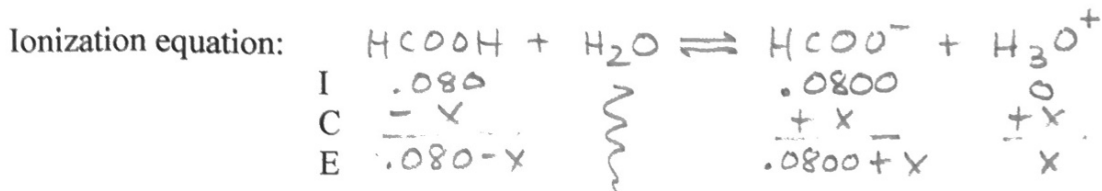 Ionization equation: HCOOH + H₂O ⇌ HCOO⁻ + H₃O⁺
I .080 .0800 0
C - x + x + x
E .080-x .0800+x x